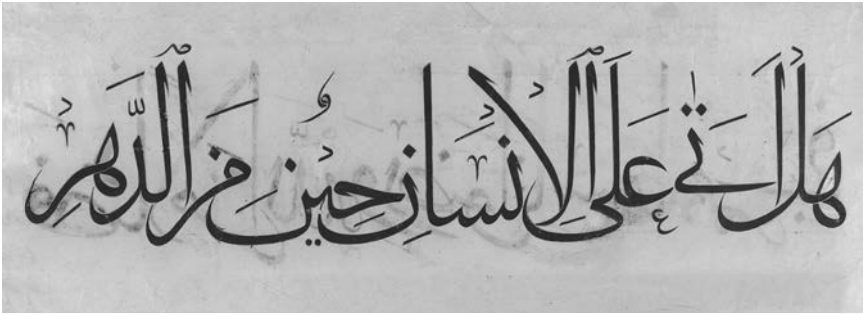 هَلْ أَتَىٰ عَلَى الْإِنْسَانِ حِينٌ مِنَ الدَّهْرِ